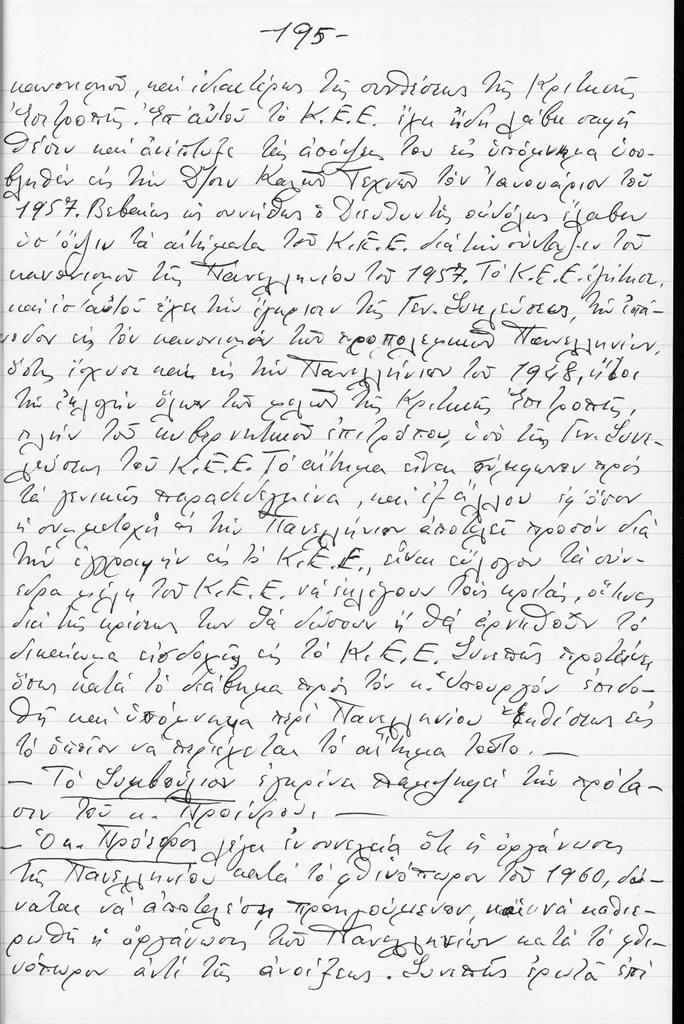 -195-
κανονισμοῦ, καί ἰδιαιτέρως τῆς συνθέσεως τῆς Κριτικῆς
Ἐπιτροπῆς. Ἐπ' αὐτοῦ τό Κ.Ε.Ε. ἔχει ἤδη λάβει σαφῆ
θέσιν καί ἀνέπτυξε τάς ἀπόψεις του εἰς ὑπόμνημα ὑπο-
βληθέν εἰς τήν Δ/σιν Καλῶν Τεχνῶν τόν Ἰανουάριον τοῦ
1957. Βεβαίως ὡς συνήθως ὁ Διευθυντής οὐδόλως ἔλαβεν
ὑπ' ὄψιν τά αἰτήματα τοῦ Κ.Ε.Ε. διά τήν σύνταξιν τοῦ
κανονισμοῦ τῆς Πανελληνίου τοῦ 1957. Τό Κ.Ε.Ε. ἐζήτησε,
καί ἐπ' αὐτοῦ ἔχει τήν ἔγκρισιν τῆς Γεν. Συνελεύσεως, τήν ἐπά-
νοδον εἰς τόν κανονισμόν τῶν προπολεμικῶν Πανελληνίων,
ὅστις ἴσχυσε καί εἰς τήν Πανελλήνιον τοῦ 1948, ἤτοι
τήν ἐκλογήν ὅλων τῶν μελῶν τῆς Κριτικῆς Ἐπιτροπῆς,
πλήν τοῦ κυβερνητικοῦ ἐπιτρόπου, ὑπό τῆς Γεν. Συνε-
λεύσεως τοῦ Κ.Ε.Ε. Τό αἴτημα εἶναι σύμφωνον πρός
τά γενικῶς παραδεδεγμένα, καί ἐξ ἄλλου ἐφ' ὅσον
ἡ συμμετοχή εἰς τήν Πανελλήνιον ἀποτελεῖ προσόν διά
τήν ἐγγραφήν εἰς τό Κ.Ε.Ε., εἶναι εὔλογον τά σύν-
εδρα μέλη τοῦ Κ.Ε.Ε. νά ἐκλέγουν τούς κριτάς, οἵτινες
διά τῆς κρίσεώς των θά δώσουν ἤ θά ἀρνηθοῦν τό
δικαίωμα εἰσδοχῆς εἰς τό Κ.Ε.Ε. Συνεπῶς προτείνει
ὅπως κατά τό διάβημα πρός τόν κ. Ὑπουργόν ἐπιδο-
θῇ καί ὑπόμνημα περί Πανελληνίου Ἐκθέσεως εἰς
τό ὁποῖον νά περιέχεται τό αἴτημα τοῦτο. —
— Τό Συμβούλιον ἐγκρίνει παμψηφεί τήν πρότα-
σιν τοῦ κ. Προέδρου. —
— Ὁ κ. Πρόεδρος λέγει ἐν συνεχεία ὅτι ἡ ὀργάνωσις
τῆς Πανελληνίου κατά τό φθινόπωρον τοῦ 1960, δύ-
ναται νά ἀποτελέση προηγούμενον, καί νά καθιε-
ρωθῆ ἡ ὀργάνωσις τῶν Πανελληνίων κατά τό φθι-
νόπωρον ἀντί τῆς ἀνοίξεως. Συνεπῶς ἐρωτᾶ ἐπί